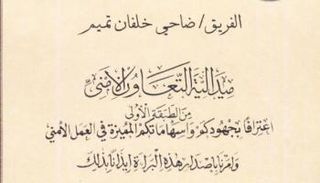 الفريق / ضاحي خلفان تميم
ميدالية التعاون الأمني
من الطبقة الأولى
اعترافًا بجهودكم وإسهاماتكم المميزة في العمل الأمني
وأمرنا بإصدار هذه البراءة إيذانًا بذلك